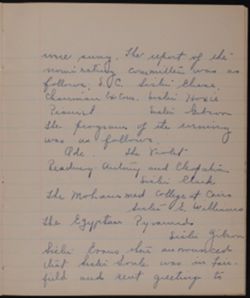 were sung. The report of the
nominating committee was as
follows. S. C. Sister Chase.
Chairman Ex Com. Sister Hoxie
Pianist Sister Gibson
The program of the evening
was as follows.
Ode. The Violet
Reading Antony and Cleopatra
Sister Clark
The Mohammed College at Cairo
Sister L. Williams
The Egyptian Pyramids
Sister Gibson
Sister Evans then announced
that Sister Soule was in Fair-
field and sent greeting to